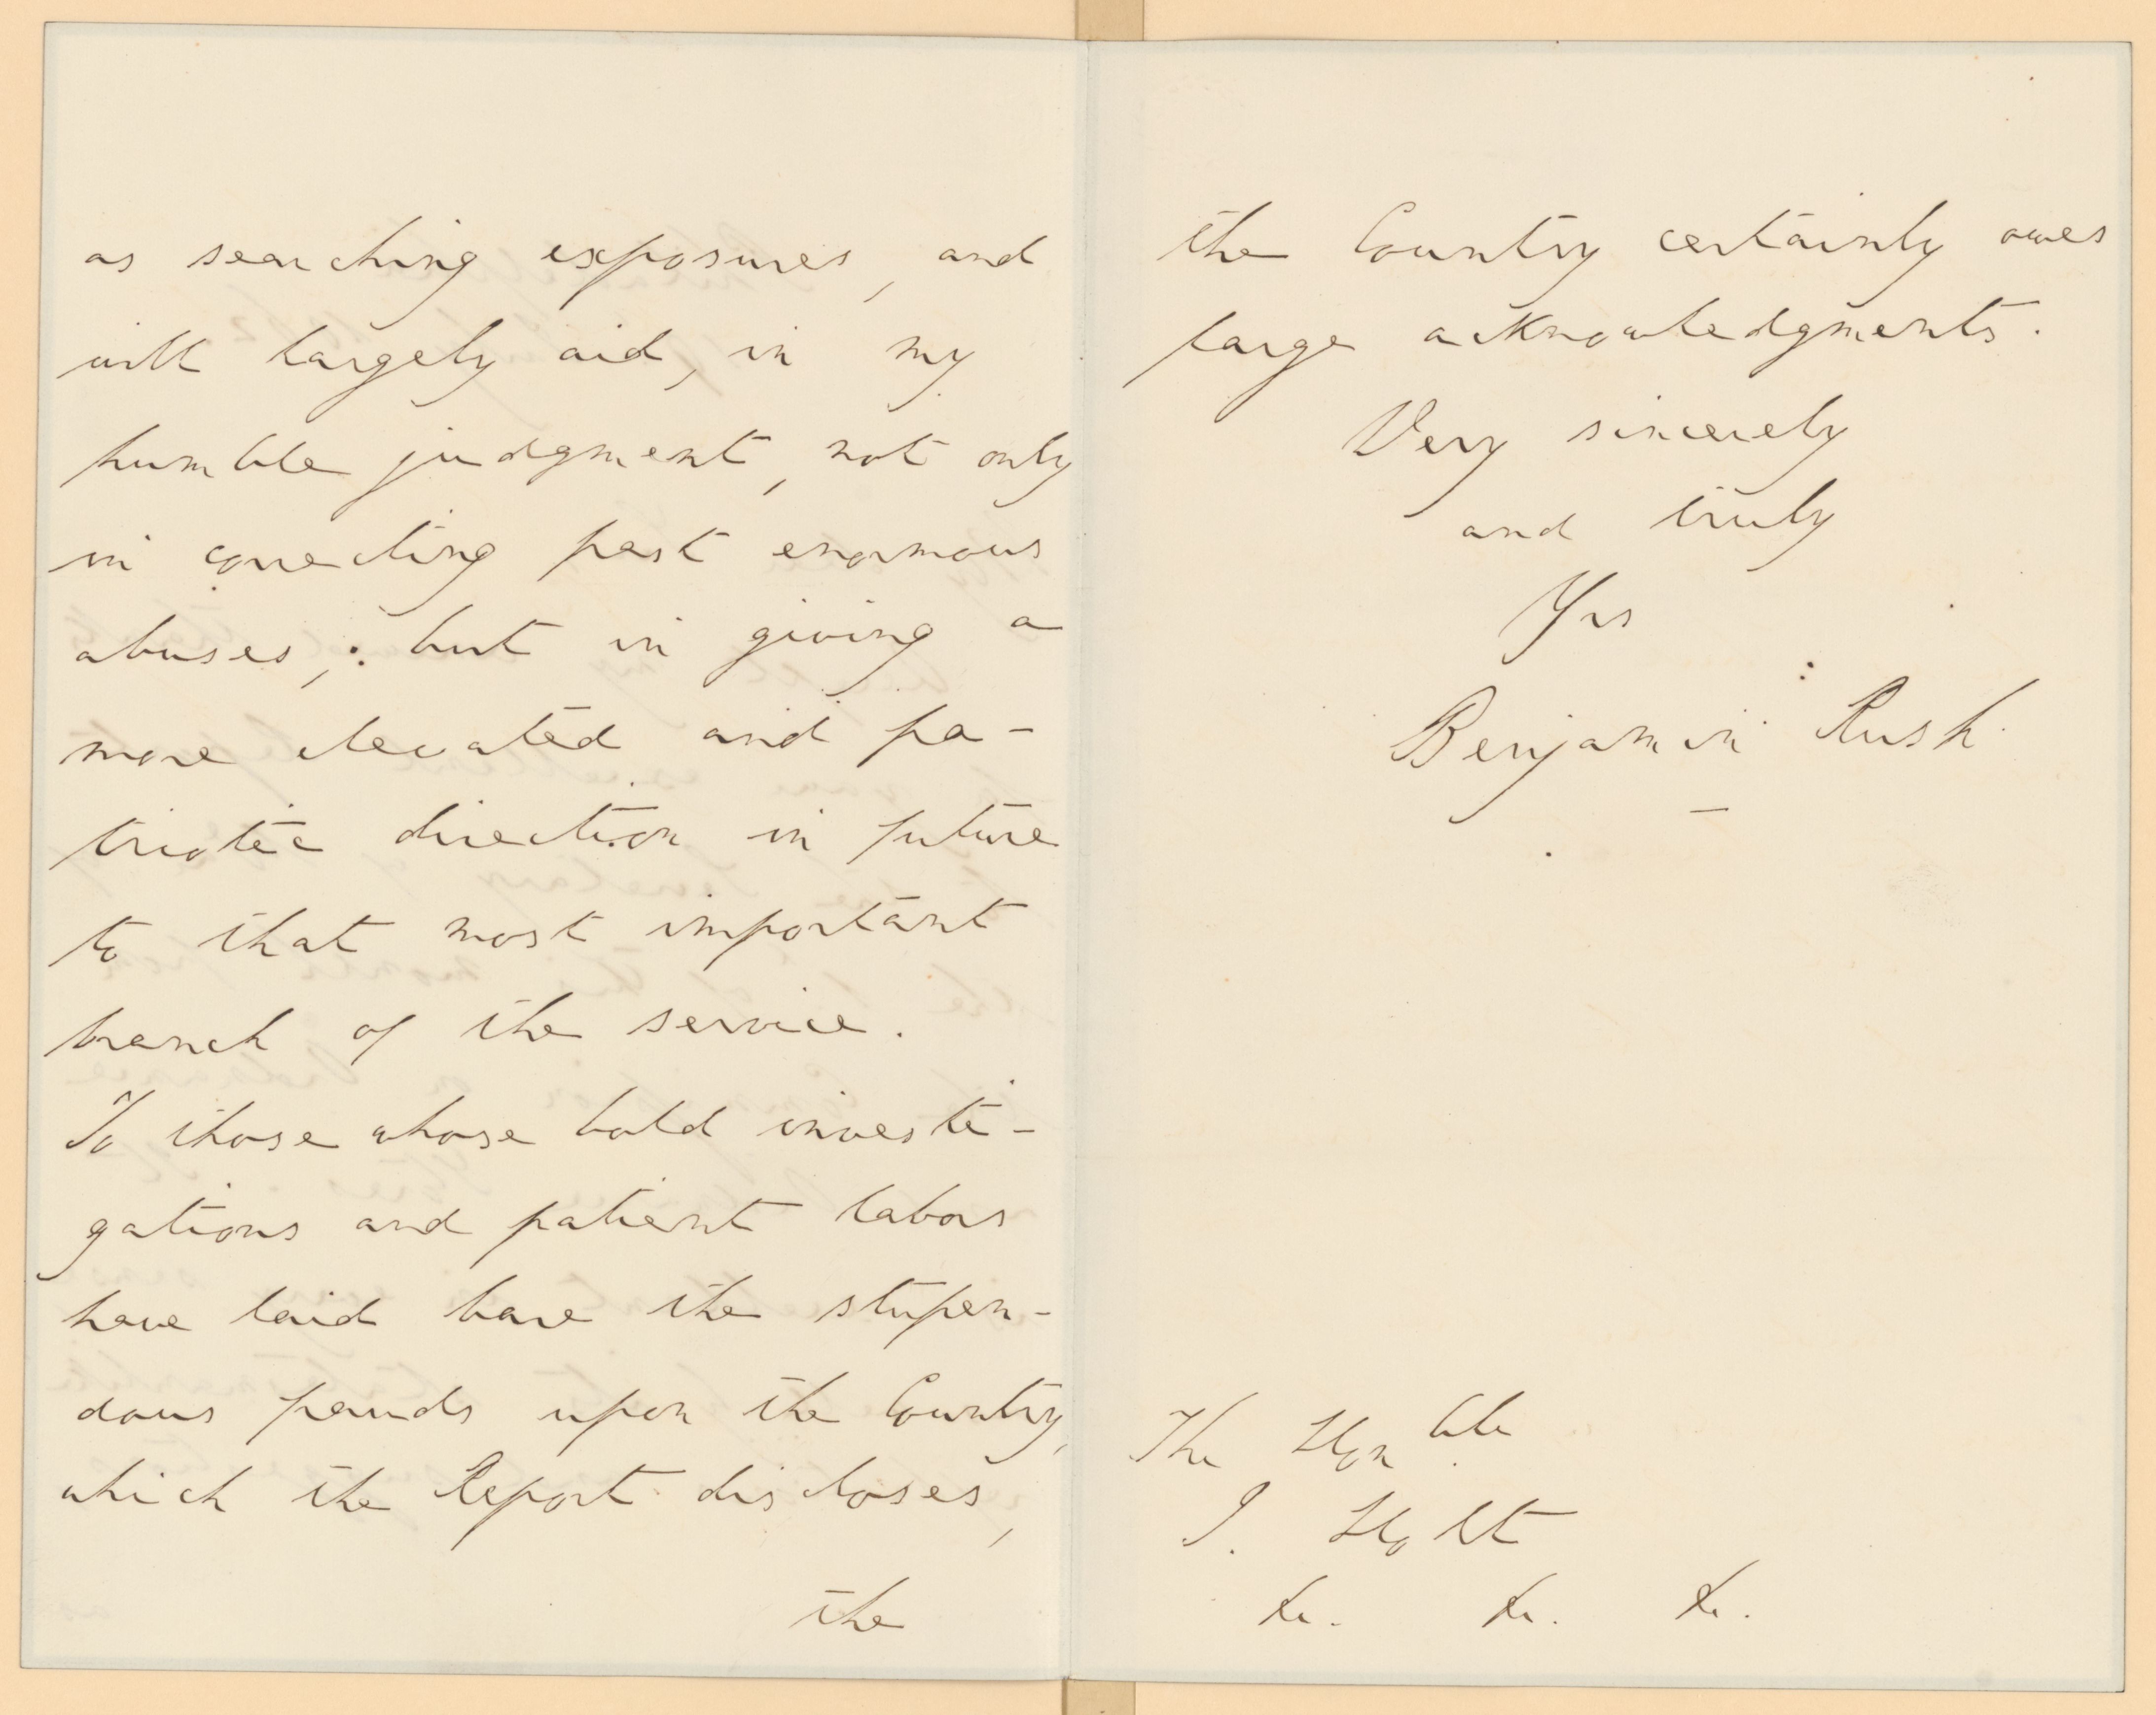 as searching exposures, and
will largely aid, in my
humble judgment, not only
in correcting past enormous
abuses; but in giving a
more elevated and pa-
triotic direction in future
to that most important
branch of the service.
To those whose bold investi-
gations and patient labors
have laid bare the stupen-
dous frauds upon the Country,
which the Report discloses,
the
the Country certainly owes
large acknowledgments.
Very sincerely
and truly
Yrs
Benjamin Rush
The Honble
J. Holt
&c. &c. &c.